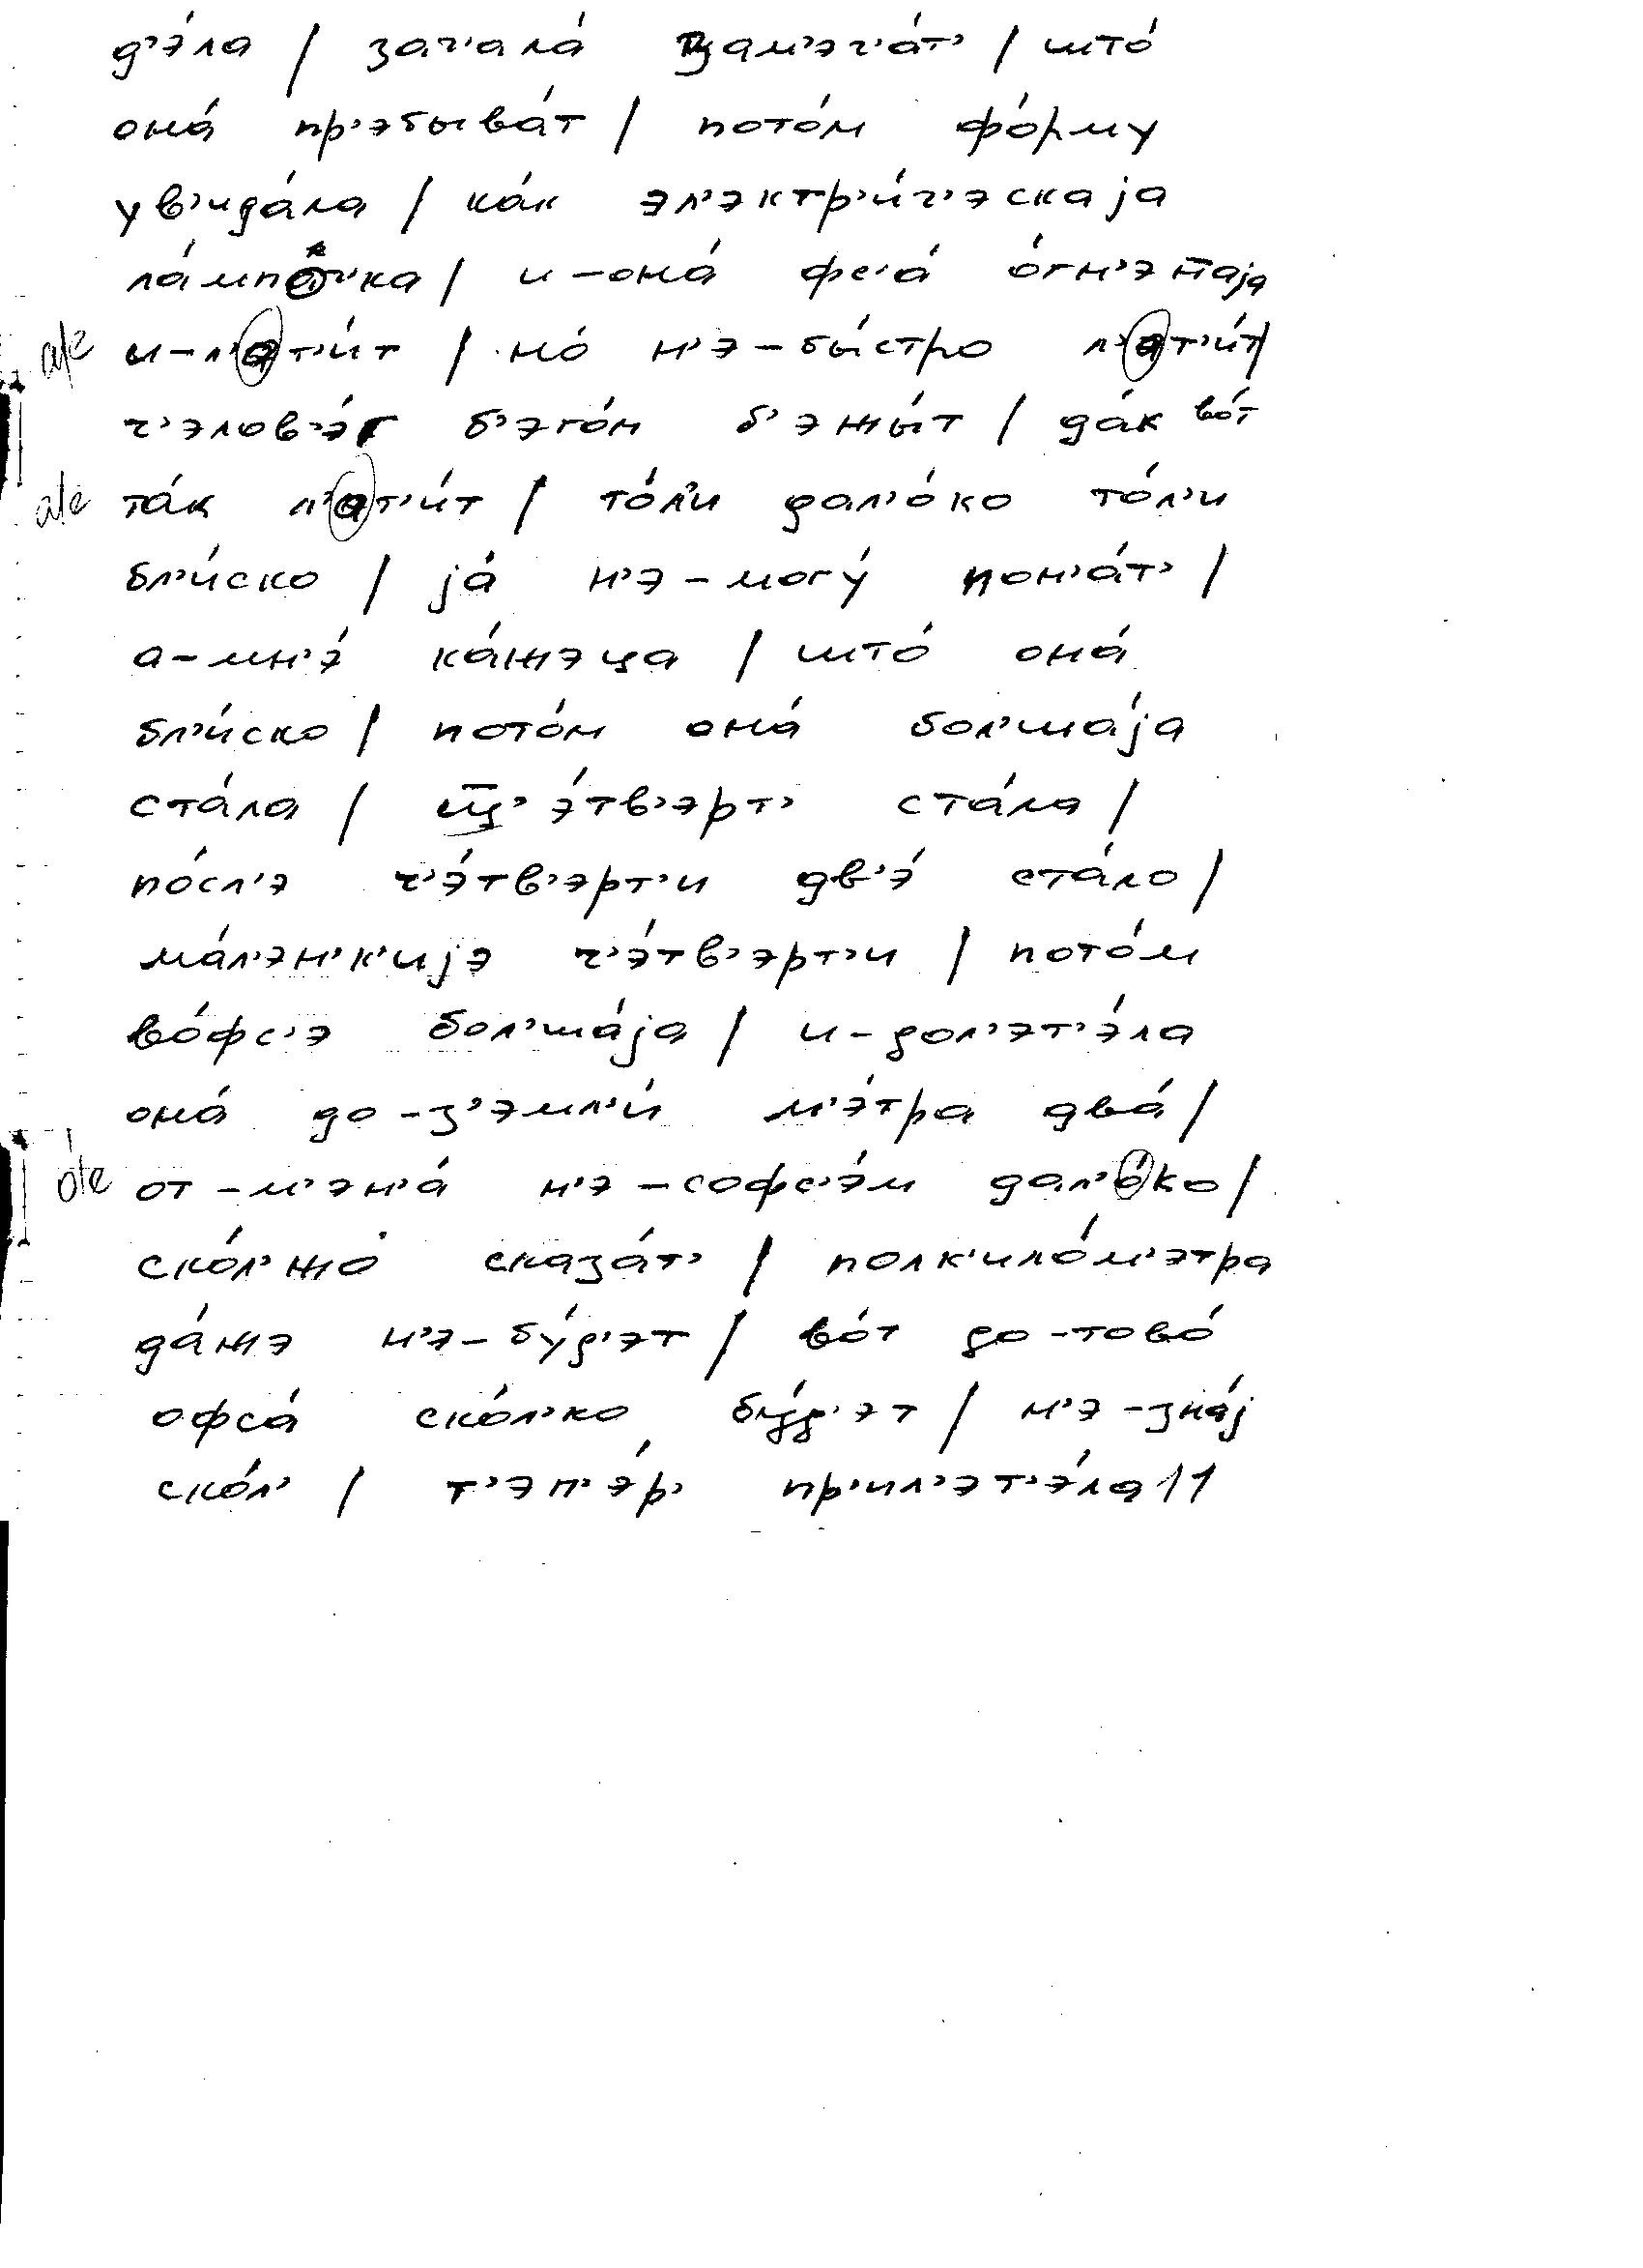 д'э́ла / зач'ала́ зам'эч'а́т' / што́
она́ пр'эбыва́т / пото́м фо́рму
ув'ида́ла / ка́к эл'эктр'и́ч'эскаjа
ла́мпоч'ка / и-она́ фс'а́ о́гн'эннаjа
а/е и-л'ат'и́т / но́ н'э-бы́стро л'ат'и́т/
ч'элов'э́г б'эго́м б'эжы́т / да́к во́т
а/е та́к л'ат'и́т / то́л'и дал'о́ко то́л'и
бл'и́ско / jа́ н'э-могу́ пон'а́т' /
а-мн'э́ ка́жэца / што́ она́
бл'и́ско / пото́м она́ бол'ша́jа
ста́ла / э́тв'эрт' ста́ла /
по́сл'э ч'э́тв'эрт'и дв'э́ ста́ло /
ма́л'эн'к'иjэ ч'э́тв'эрт'и / пото́м
во́фс'э бол'ша́jа / и-дол'эт'э́ла
она́ до-з'эмл'и́ м'э́тра два́ /
о́/е от-м'эн'а́ н'э-софс'э́м дал'о́ко /
ско́л'жо сказа́т' / полк'ило́м'этра
да́жэ н'э-бу́д'эт / во́т до-тово́
офса́ ско́л'ко бу́д'эт / н'э-зна́j
ско́л' / т'эп'э́р' пр'ил'эт'э́ла //